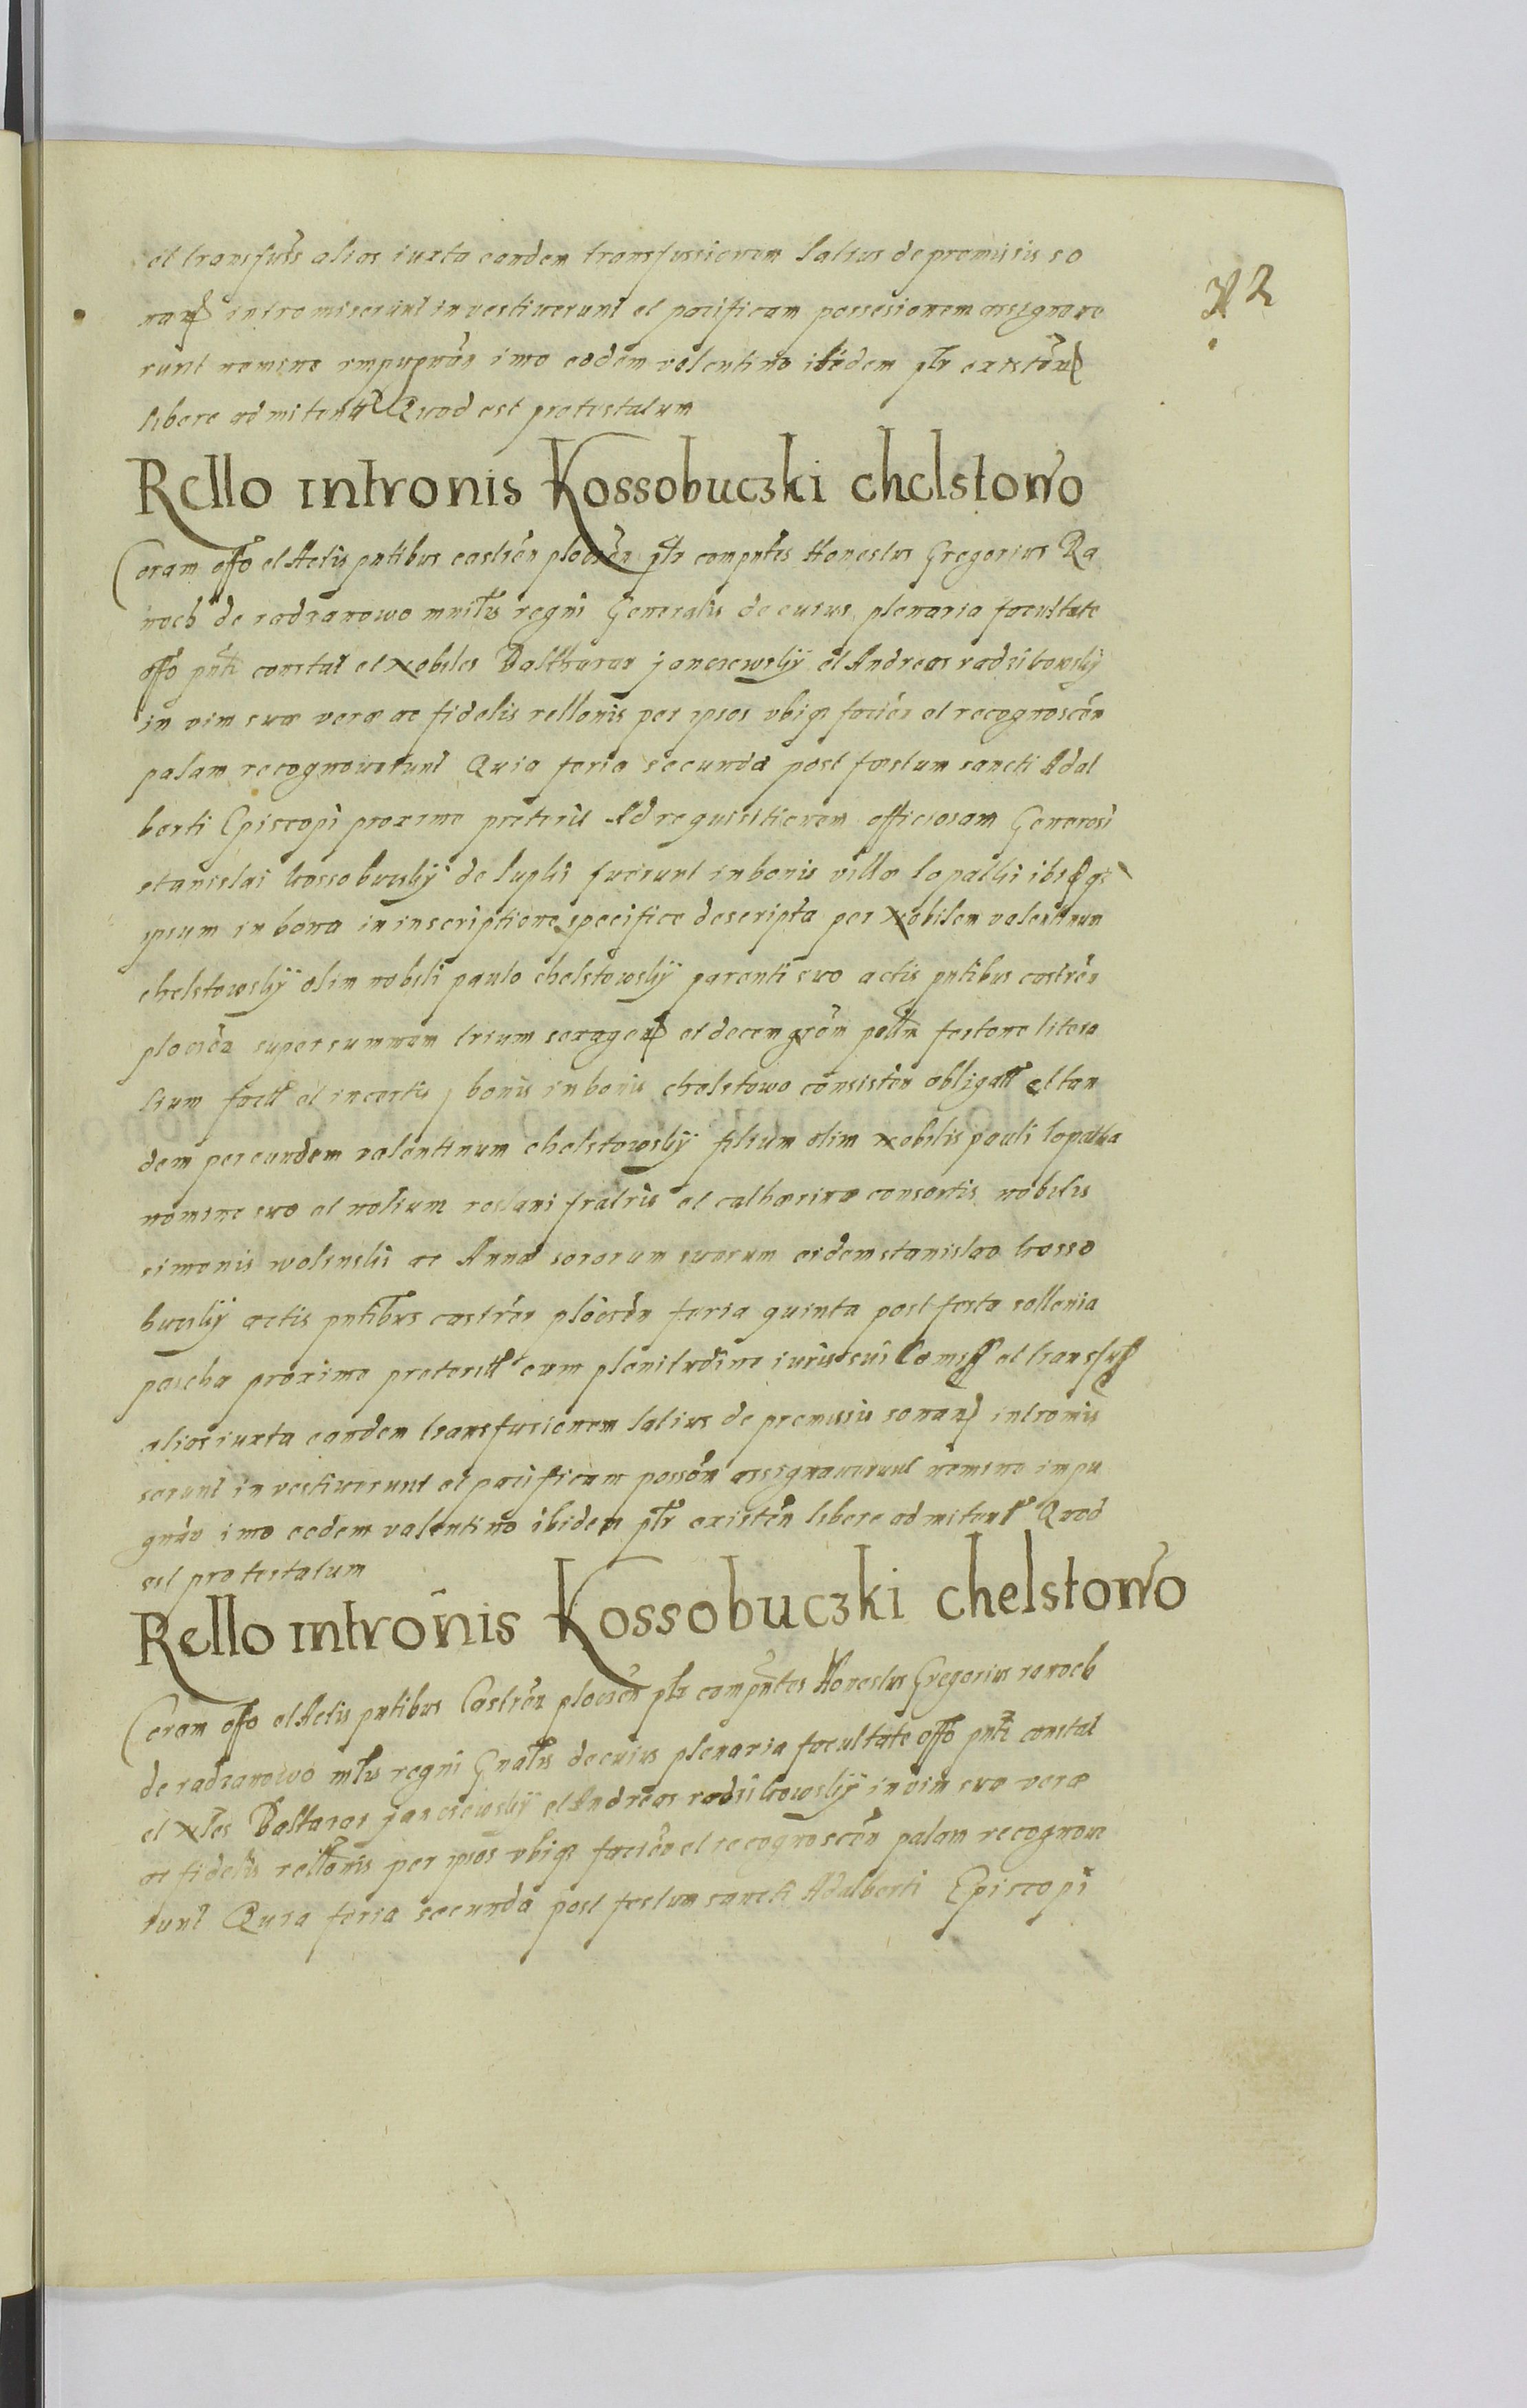 et transfuss alias iuxta eandem transfussionem latius de premissis so
nan intromiserunt investiverunt et pacificam possesionem assignave
runt nemine impugnan imo eodem valentino ibidem pltr existen
libere admitente Quod est protestatum
32
Rello intronis Kossobuczki chelstowo
Coram offo et Actis pntibus castren plocen pltr compntes Honestus Gregorius Ra
noch de radzanowo mnitlis regni Generalis de cuius plenaria facultate
offo pnti constat et Nobiles Balthazar janczewskÿ et Andreas radzikowskÿ
in vim suæ veræ ac fidelis rellonis per ipsos ubiqz facien et recognoscen
palam recognoverunt Quia feria secunda post festum sancti Adal
berti Episcopi proxime preterit Ad requisitionem officiosam Generosi
stanislai kossobuczkÿ de lupki fuerunt in bonis villæ lopatki ibiqz
ipsum in bona in inscriptione specifice descripta per Nobilem valentinum
chelstowskÿ olim nobili paulo chelstowskÿ parenti suo actis pntibus castren
plocen super summam trium sexagen et decem gron pollm festone litera
lium fact et in certis bonis in bonis chelstowo consisten obligatt et tan
dem per eundem valentinum chelstowskÿ filium olim nobilis pauli lopatka
nomine suo et nolium roslani fratris et catharinæ consortis nobilis
simonis wolinski ac Annæ sororum suorum eidem stanislao kosso
buczkÿ actis pntibus castren plocen feria quinta post festa sollenia
pascha proxime preteritt cum plenitudine iuris sui et transfuss
alias iuxta eandem transfusionem latius de premissis sonan intromis
serunt investiverunt et pacificam posson assignaverunt nemine impu
gnan imo eodem valentino ibidem pltr existen libere admitent Quod
est protestatum
Rello intronis Kossobuczki chelstowo
Coram offo et Actis pntibus Castren plocen pltr compntes Honestus Gregorius ranoch
de radzanowo mtlis regni Gnalis de cuius plenaria facultate offo pnti constat
et Nles Baltazar janczewskÿ et Andreas radzikowskÿ in vim suæ veræ
ac fidelis rellonis per ipsos ubiqz facien et recognoscen palam recognove
runt Quia feria secunda post festum sancti Adalberti Episcopi